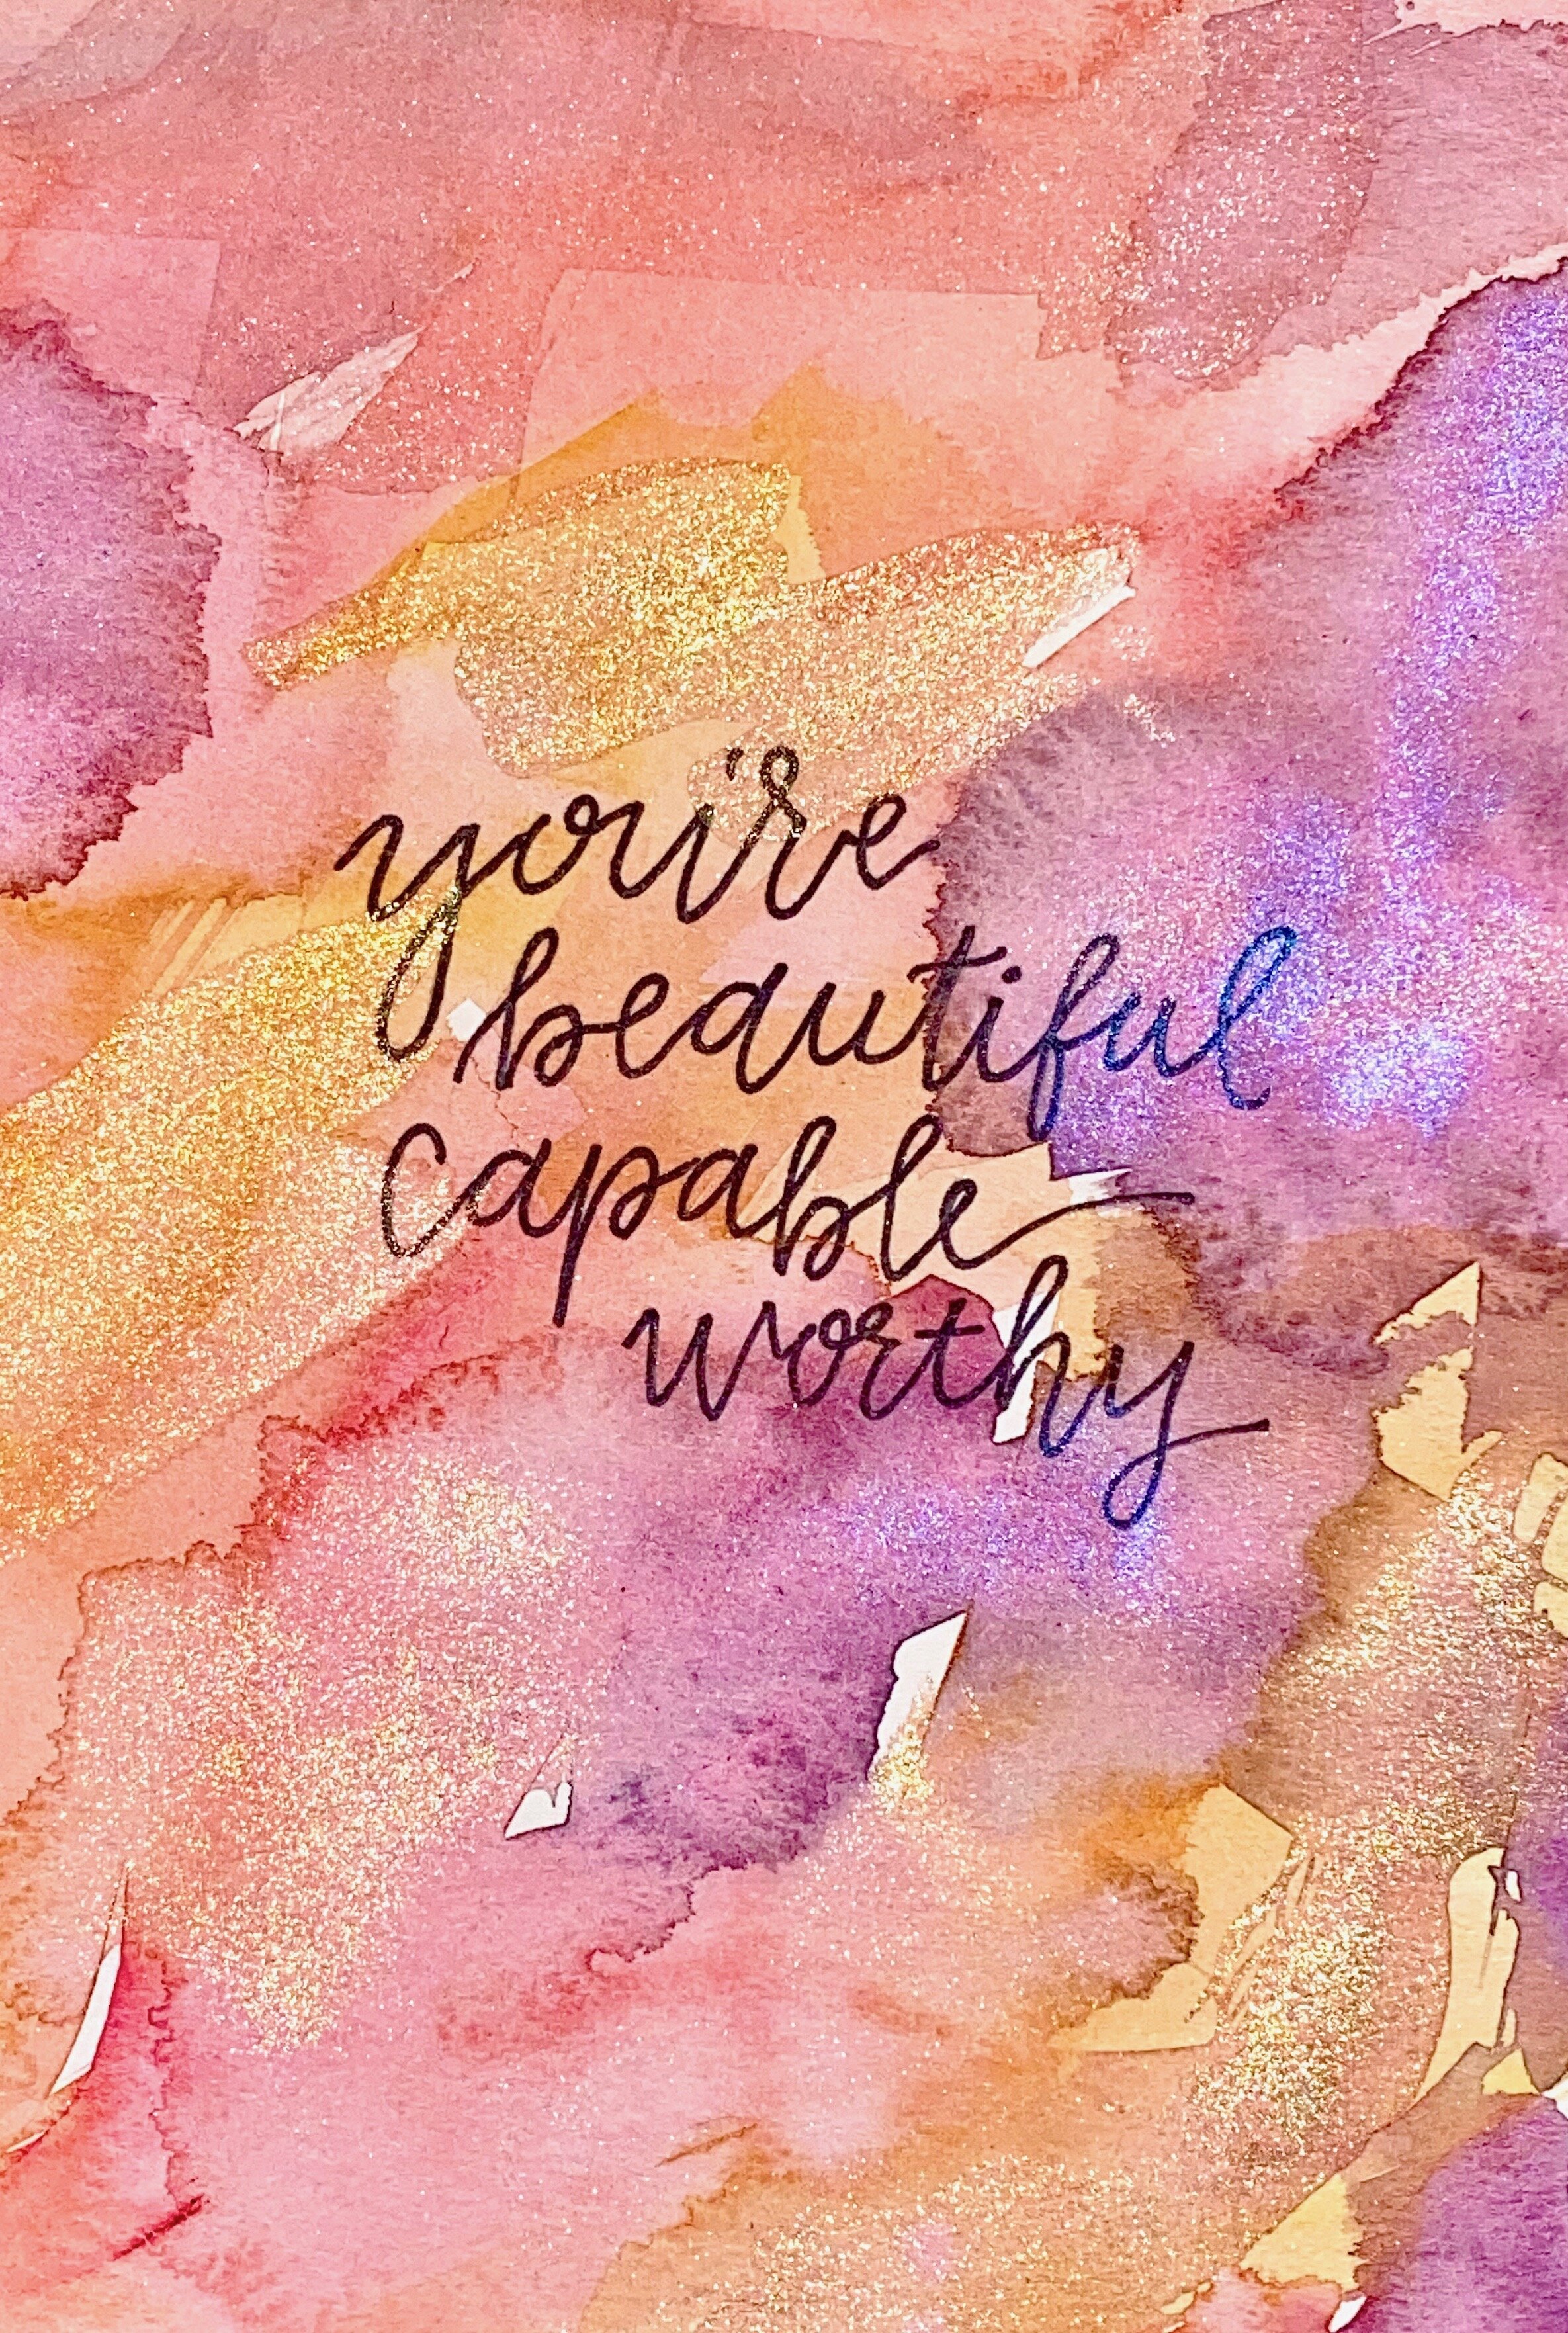 you're
beautiful
capable
worthy